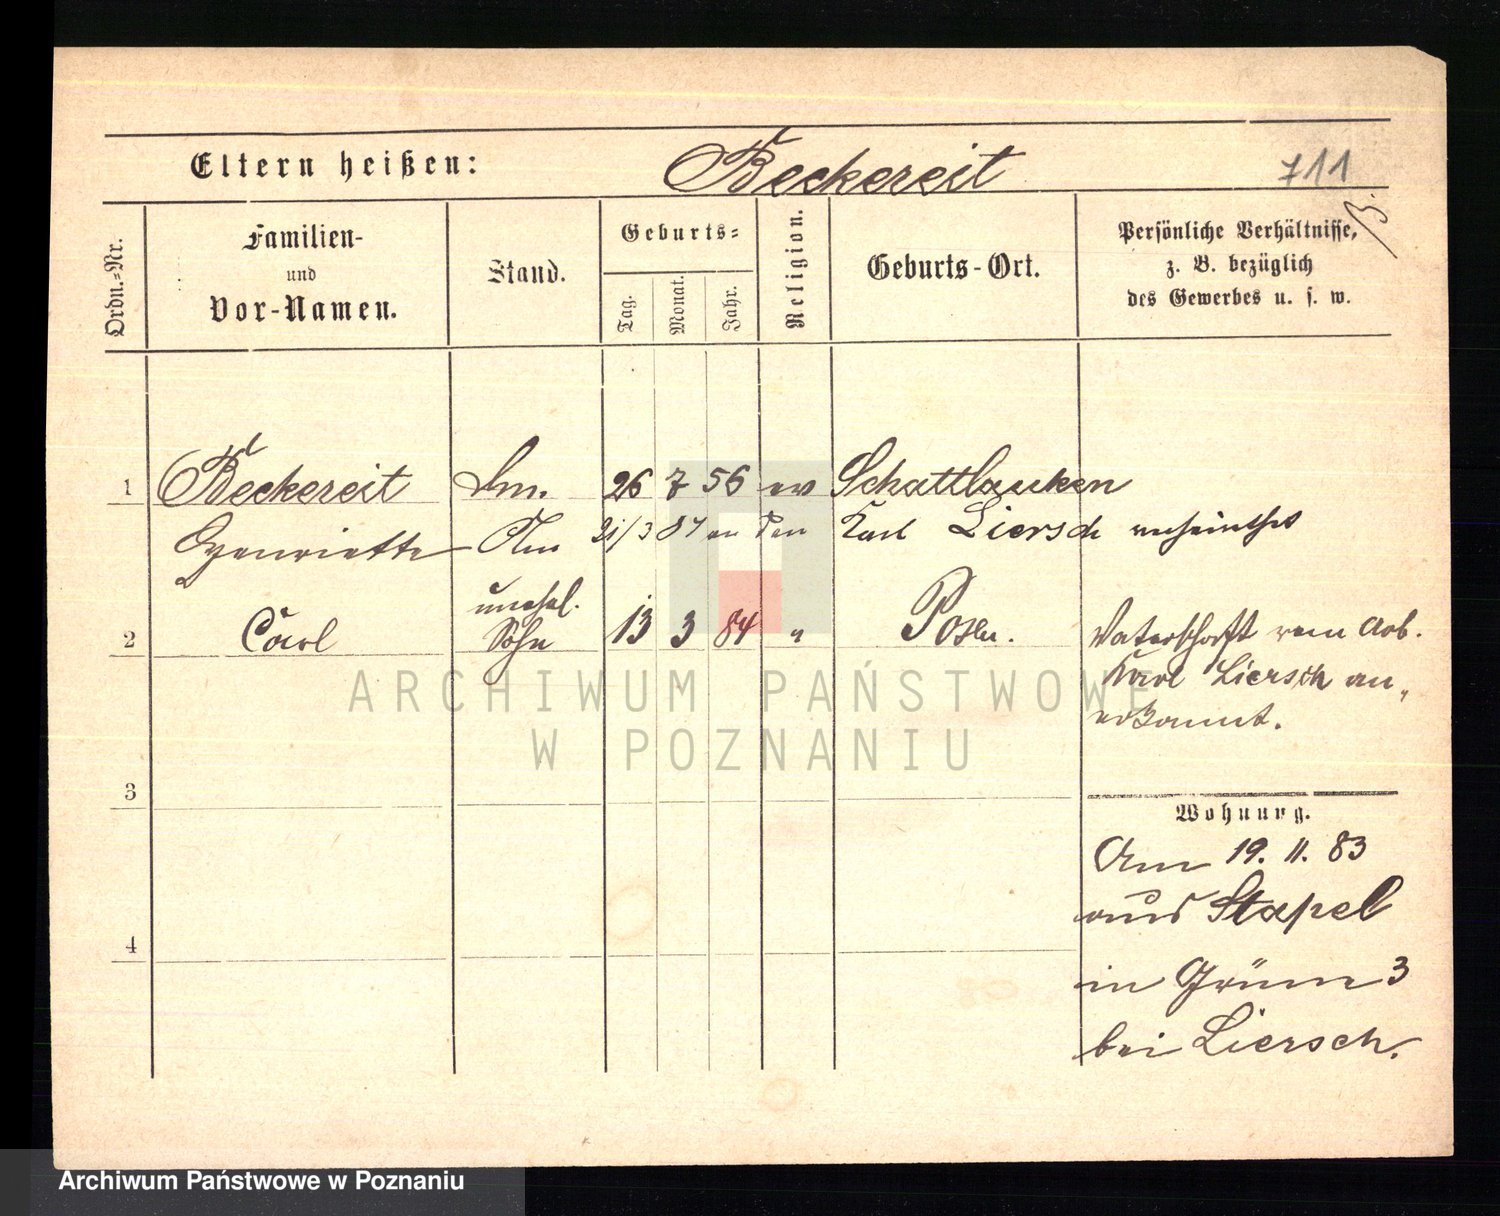 Eltern heißen: Beckereit 711
Ordn.-Nr.
Familien-
und
Vor-Namen.
Stand.
Geburts-
Tag.
Monat.
Jahr.
Religion.
Geburts-Ort.
Persönliche Verhältnisse,
z. B. bezüglich
des Gewerbes u. s. w.
1 Beckereit 26 7 56 ev Schattlauken
Henriette 21/3 87 an den Karl Liersch verheirathet
unehel.
2 Carl Sohn 13 3 84 " Posen.
Vaterschaft vom Arb.
Karl Liersch an„
erkannt.
ARCHIWUM PAŃSTWOWE
W POZNANIU
3
Wohnung.
Am 19. 11. 83
aus Stapel
4
in Grüne 3
bei Liersch.
Archiwum Państwowe w Poznaniu